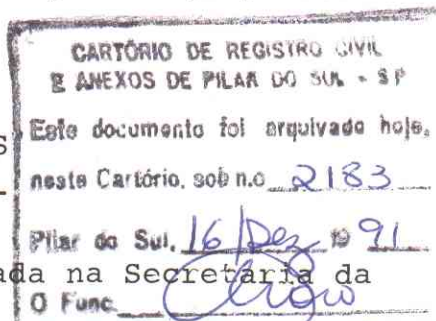 CARTÓRIO DE REGISTRO CIVIL
E ANEXOS DE PILAR DO SUL - SP
S
Este documento foi arquivado hoje,
neste Cartório, sob n.o 2183
Pilar do Sul, 16 Dez 19 91
ada na Secretária da
O Func.